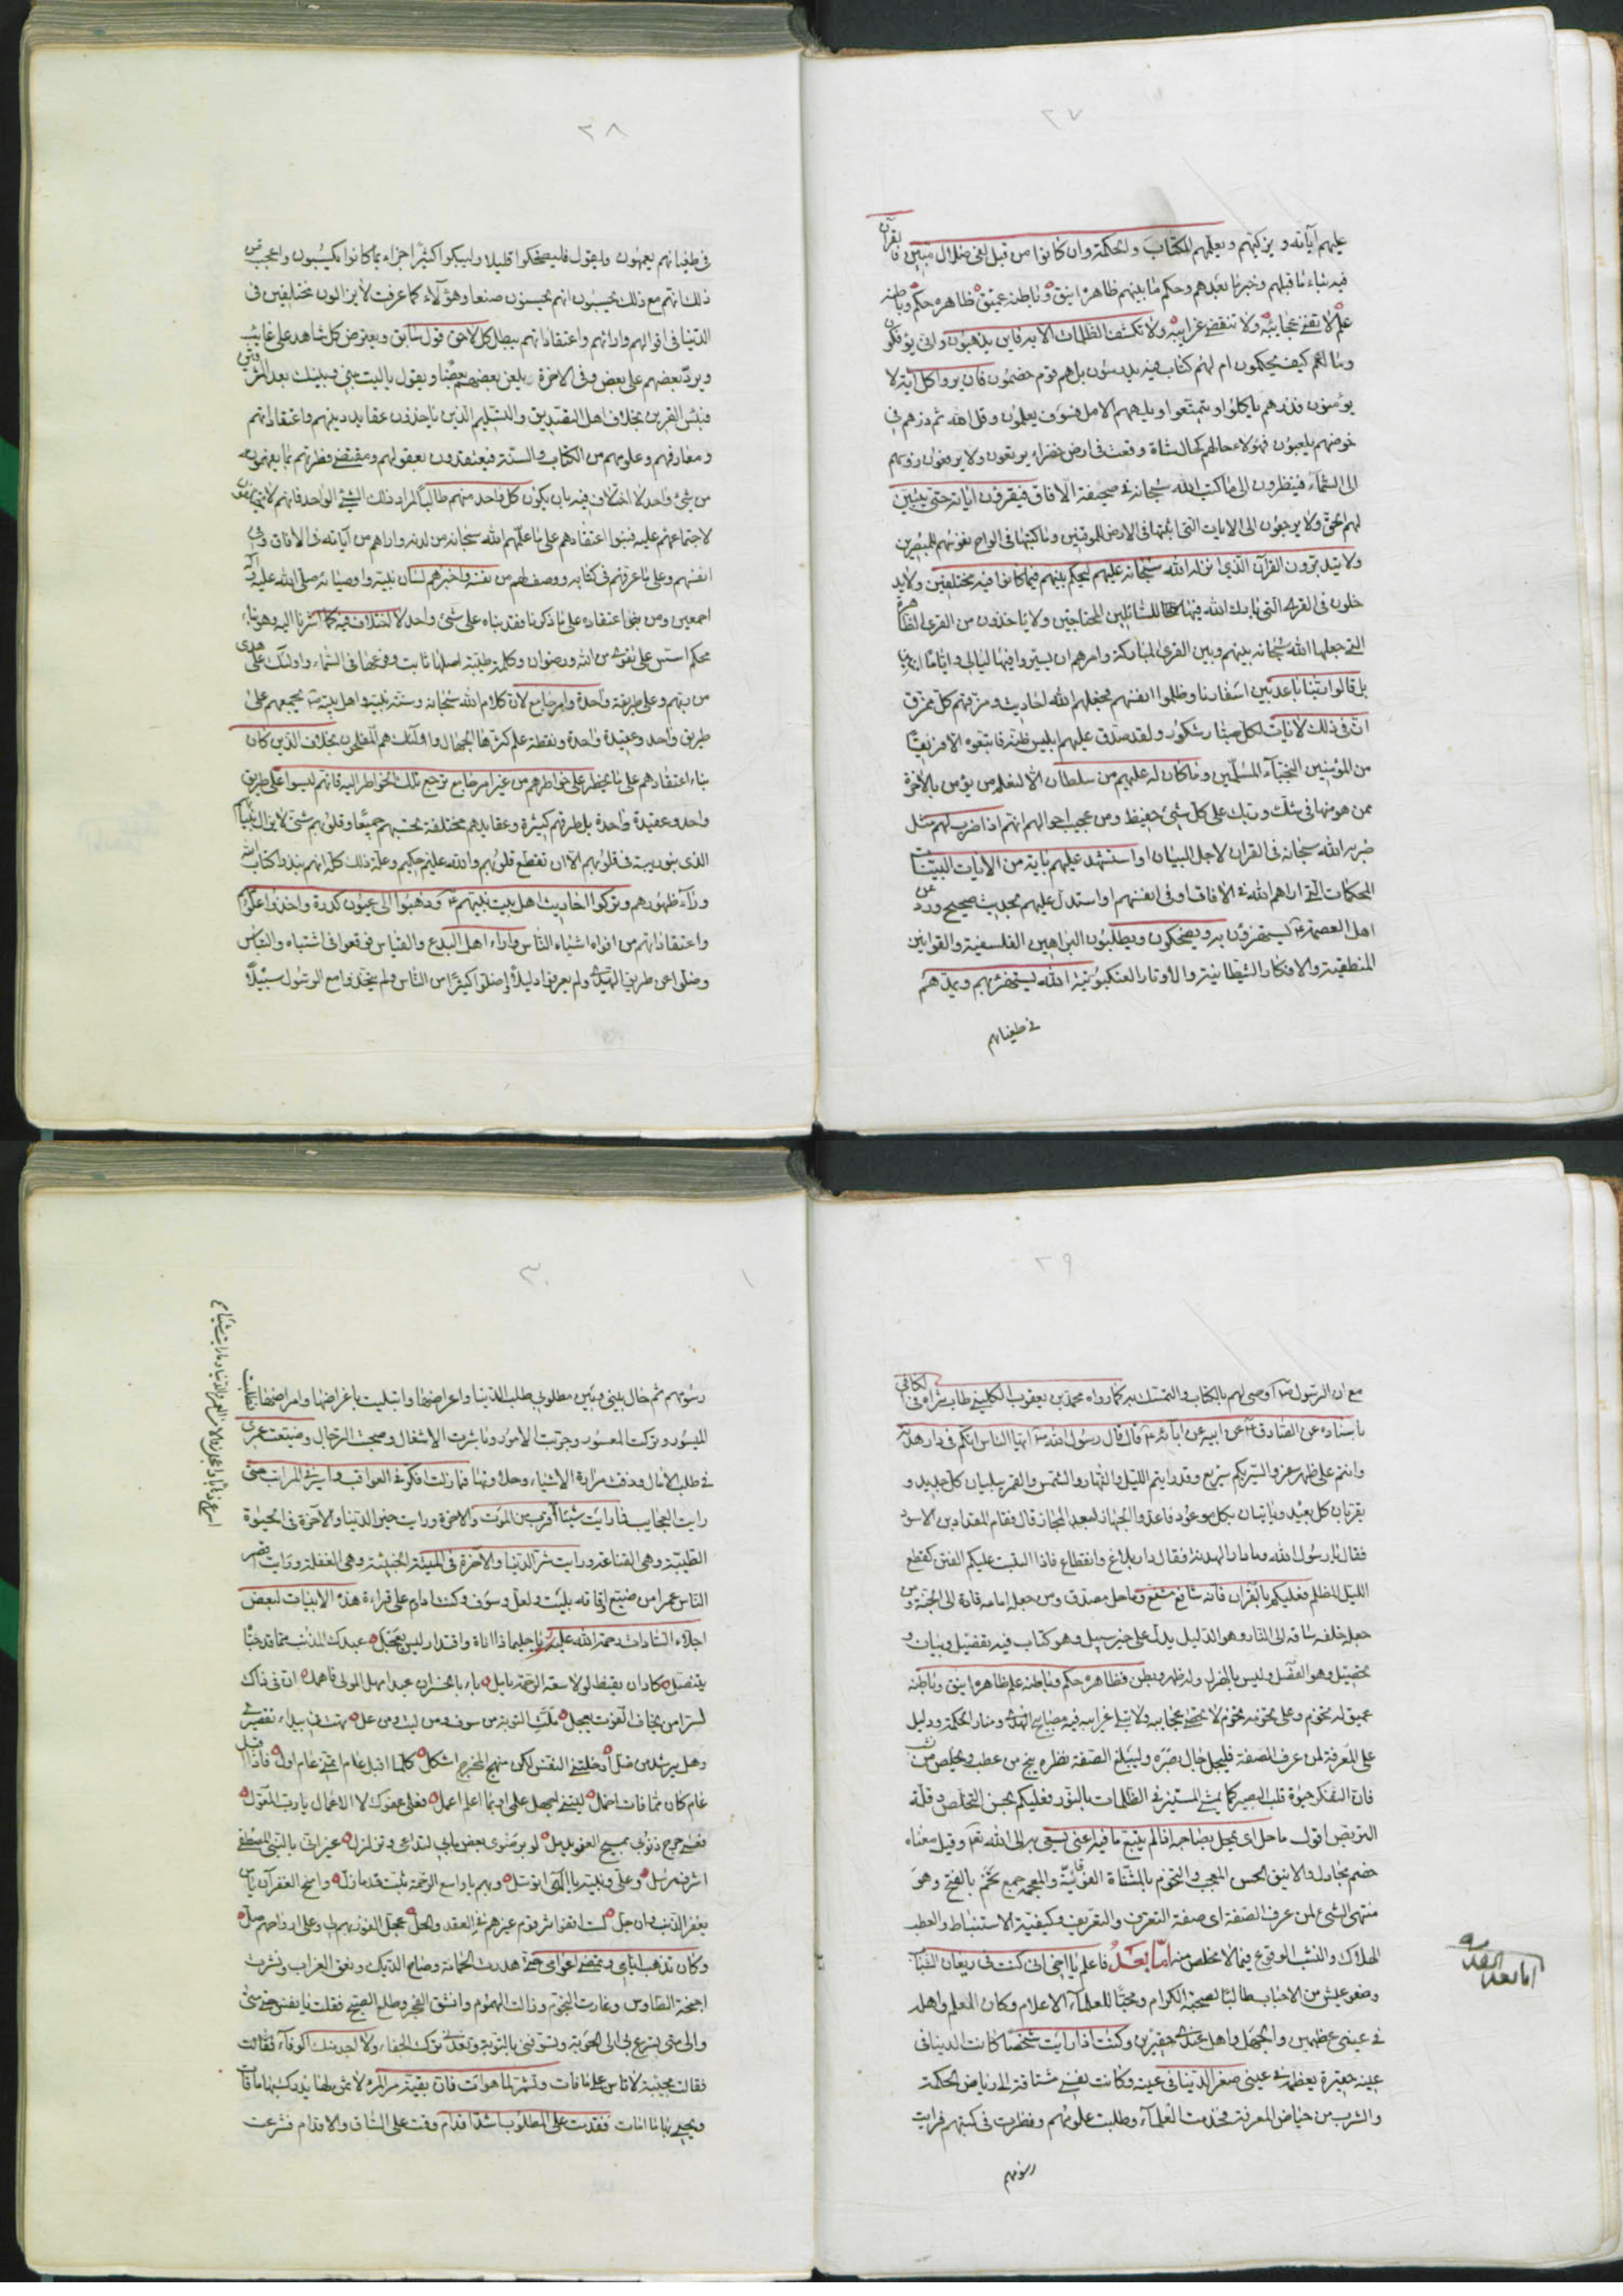 ٢٧
عليهم آياته ويزكيهم ويعلمهم الكتاب والحكمة وان كانوا من قبل لفي ضلال مبين بقرآن
فيه نباء ما قبلهم وخبر ما بعدهم وحكم ما بينهم ظاهره انيق وباطنه عميق ظاهره حكم وباطنه
علم لا تفنى عجايبه ولا تنقضى غرايبه ولا تكشف الظلمات الا به فاين يذهبون وانى يؤفكون
وما لهم كيف يحكمون ام لهم كتاب فيه يدرسون بل هم قوم خصمون فان يروا كل آية لا
يؤمنون فذرهم ياكلوا ويتمتعوا ويلههم الامل فسوف يعلمون وقل الله ثم ذرهم في
خوضهم يلعبون فهؤلاء حالهم كحال شاة وقعت في ارض خضراء يرتعون ولا يرفعون رؤسهم
الى السماء فينظرون الى ما كتب الله سبحانه في صحيفة الآفاق فيقرؤن اياته حتى يتبين
لهم الحق ولا يرجعون الى الايات التي اثبتها في الارض للموقنين وما كتبها في الواح نفوسهم للمبصرين
ولا يتدبرون القرآن الذي انزله الله سبحانه عليهم ليحكم بينهم فيما كانوا فيه يختلفين ولا يد
خلون في القرى التي بارك الله فيها للسائلين المحتاجين ولا ياخذون من القرى الظاهرة
التي جعلها الله سبحانه بينهم وبين القرى المباركة وامرهم ان يسيروا فيها ليالي واياما امنين
بل قالوا ربنا باعد بين اسفارنا وظلموا انفسهم فجعلهم الله احاديث ومزقهم كل ممزق
ان في ذلك لايات لكل صبار شكور ولقد صدق عليهم ابليس ظنه فاتبعوه الا فريقا
من المؤمنين النجباء المسلمين وما كان له عليهم من سلطان الا لنعلم من يؤمن بالاخرة
ممن هو منها في شك وربك على كل شئ حفيظ ومن عجيب احوالهم انهم اذا ضرب لهم مثل
ضربه الله سبحانه في القران لاجل البيان او استشهد عليهم باية من الايات البينات
المحكمات التي اراهم الله في الافاق او في انفسهم او استدل عليهم بحديث صحيح ورد عن
اهل العصمة ع ليستهزؤن به ويضحكون ويطلبون البراهين الفلسفية والقوانين
المنطقية والافكار الشيطانية والاوتار العنكبوتية الله يستهزئ بهم ويمدهم
في طغيانهم
٢٨
في طغيانهم يعمهون ويقول فليضحكوا قليلا وليبكوا كثيرا جزاء بما كانوا يكسبون واعجب من
ذلك انهم مع ذلك يحسبون انهم يحسنون صنعا وهؤلاء كما عرفت لا يزالون مختلفين في
الدنيا في اقوالهم وارائهم واعتقاداتهم يبطل كل لاحق قول سابق ويعترض كل شاهد على غايب
ويرد بعضهم على بعض وفي الاخرة يلعن بعضهم بعضا ويقول يا ليت بيني وبينك بعد المشرقين
فبئس القرين بخلاف اهل التصديق والتسليم الذين ياخذون عقايد دينهم واعتقاداتهم
ومعارفهم وعلومهم من الكتاب والسنة فيعتقدون بعقولهم ومقتضى فطرتهم بما يفهمونه
من شئ واحد لا اختلاف فيه بان يكون كل واحد منهم طالبا لمراد ذلك الشئ الواحد فانهم لا يختلفون
لاجتماعهم عليه فبنوا اعتقادهم على ما علمهم الله سبحانه من لدنه واراهم من آياته في الافاق وفي
انفسهم وعلى ما عرفهم في كتابه ووصف لهم من نفسه واخبرهم لسان نبيه واوصيائه صلى الله عليه وآله
اجمعين ومن بنوا اعتقاده على ما ذكرنا فقد بناه على شئ واحد لا اختلاف فيه كما اشرنا اليه وهو بناء
محكم اسس على تقوى من الله ورضوان وكلمة طيبة اصلها ثابت وفرعها في السماء واولئك على هدى
من ربهم وعلى طريقة واحدة وامر جامع لان كلام الله سبحانه وسنة نبيه واهل بيته ع يجمعهم على
طريق واحد وعقيدة واحدة ونقطة علم كثرها الجهال واولئك هم المفلحون بخلاف الذين كان
بناء اعتقادهم على ما يخطر على خواطرهم من غير امر جامع ترجع تلك الخواطر اليه فانهم ليسوا على طريق
واحد وعقيدة واحدة بل طرقهم كثيرة وعقايدهم مختلفة تحسبهم جميعا وقلوبهم شتى لا يزال بنيانهم
الذي بنوا ريبة في قلوبهم الا ان تقطع قلوبهم والله عليم حكيم وعلة ذلك كله انهم نبذوا كتاب الله
وراء ظهورهم وتركوا احاديث اهل بيت نبيهم ع وذهبوا الى عيون كدرة واخذوا علومهم
واعتقاداتهم من افواه اشباه الناس واراء اهل البدع والقياس فوقعوا في اشتباه والتباس
وضلوا عن طريق الهدى ولم يعرفوا دليلا واضلوا كثيرا من الناس ولم يتخذوا مع الرسول سبيلا
٢٩
مع ان الرسول ص اوصى لهم بالكتاب والتمسك به كما رواه محمد بن يعقوب الكليني طاب ثراه في الكافي
باسناده عن الصادق ع عن ابيه عن آبائه ع قال قال رسول الله ص ايها الناس انكم في دار هدنة
وانتم على ظهر سفر والسير بكم سريع وقد رايتم الليل والنهار والشمس والقمر يبليان كل جديد و
يقربان كل بعيد وياتيان بكل موعود فاعدوا الجهاز لبعد المجاز قال فقام المقداد بن الاسود
فقال يا رسول الله وما دار الهدنة فقال دار بلاغ وانقطاع فاذا التبست عليكم الفتن كقطع
الليل المظلم فعليكم بالقران فانه شافع مشفع وماحل مصدق ومن جعله امامه قاده الى الجنة ومن
جعله خلفه ساقه الى النار وهو الدليل يدل على خير سبيل وهو كتاب فيه تفصيل وبيان و
تحصيل وهو الفصل وليس بالهزل وله ظهر وبطن فظاهره حكم وباطنه علم ظاهره انيق وباطنه
عميق له تخوم وعلى تخومه تخوم لا تحصى عجايبه ولا تبلى غرايبه فيه مصابيح الهدى ومنار الحكمة ودليل
على المعرفة لمن عرف الصفة فليجل جال بصره وليبلغ الصفة نظره ينج من عطب ويخلص من نشب
فان التفكر حيوة قلب البصير كما يمشي المستنير في الظلمات بالنور فعليكم بحسن التخلص وقلة
التربص اقول ماحل اى يمحل بصاحبه اذا لم يتبع ما فيه اعنى يسعى به الى الله تعالى وقيل معناه
خصم مجادل والانيق الحسن المعجب والتخوم بالمثناة الفوقانية والمعجمة جمع تخم بالفتح وهو
منتهى الشئ لمن عرف الصفة اى صفة التعرف والتعريف وكيفية الاستنباط والعطب
الهلاك والنشب الوقوع فيما لا مخلص منه اما بعد فاعلم يا اخي اني كنت في ريعان الشباب
وصفو عيش من الاحباب طالبا لصحبة الكرام ومحبا للعلماء الاعلام وكان العلم واهله
في عيني عظيمين والجهل واهله عندي حقيرين وكنت اذا رايت شخصا كانت الدنيا في
عينه حقيرة يعظمه في عيني صغر الدنيا في عينه وكانت نفسي مشتاقة الى رياض الحكمة
والشرب من حياض المعرفة فخدمت العلماء وطلبت علومهم ونظرت في كتبهم فرايت
رسومهم
اما بعد
٣٠
رسومهم ثم حال بيني وبين مطلوبي طلب الدنيا واعراضها وابتليت باغراضها وامراضها فطلبت
الميسور وتركت المعسور وجربت الامور وباشرت الاشغال وصحبت الرجال وضيعت عمرى
في طلب الآمال وذقت مرارة الاشياء وحلاوتها فما زلت افكر في العواقب واسير في المراتب حتى
رايت العجايب فما رايت شيئا اقرب من الموت والاخرة ورايت خير الدنيا والآخرة في الحيوة
الطيبة وهى القناعة ورايت شر الدنيا والآخرة في الميتة الخبيثة وهى الغفلة ورايت اقصر
الناس عمرا من ضيع اوقاته بليت ولعل وسوف وكنت ادوم على قراءة هذه الابيات لبعض
اجلاء السادات رحمة الله عليه يا حليما ذا اناة واقتدار ليس يعجل عبدك المذنب مما قد جنا
يتنصل كاد ان يقنط لولا سعة الرحمة
لست امن يخاف الفوت يعجل
غام كان مما فات امحل ليتنى اجهل علمي او بما اعلم اعمل فعلى عفوك لا الاعمال يا رب المعول
اشرف مرسل وعلي وبنيه يا الهي اتوسل وبهم يا واسع الرحمة ثبت قدما زل
وكان تذهب ايامى وتمضى اعوامى حتى هدرت الحمامة وصاح الديك ونعق الغراب ونشرت
اجنحة الطاوس وغارت النجوم وزالت الهموم وانشق الفجر وطلع الصبح فقلت يا نفس حتى متى
والى متى تسرعي بي الى الحوبة وتسوفني بالتوبة
فقالت مجيبة لا تاس على ما فات وتشمر لما هو آت فان بقية عمر المرء لا ثمن لها يدرك بها ما فات
ويحيى بها ما امات فقدمت على المطلوب اشد اقدام وقمت على الساق والاقدام فشرعت